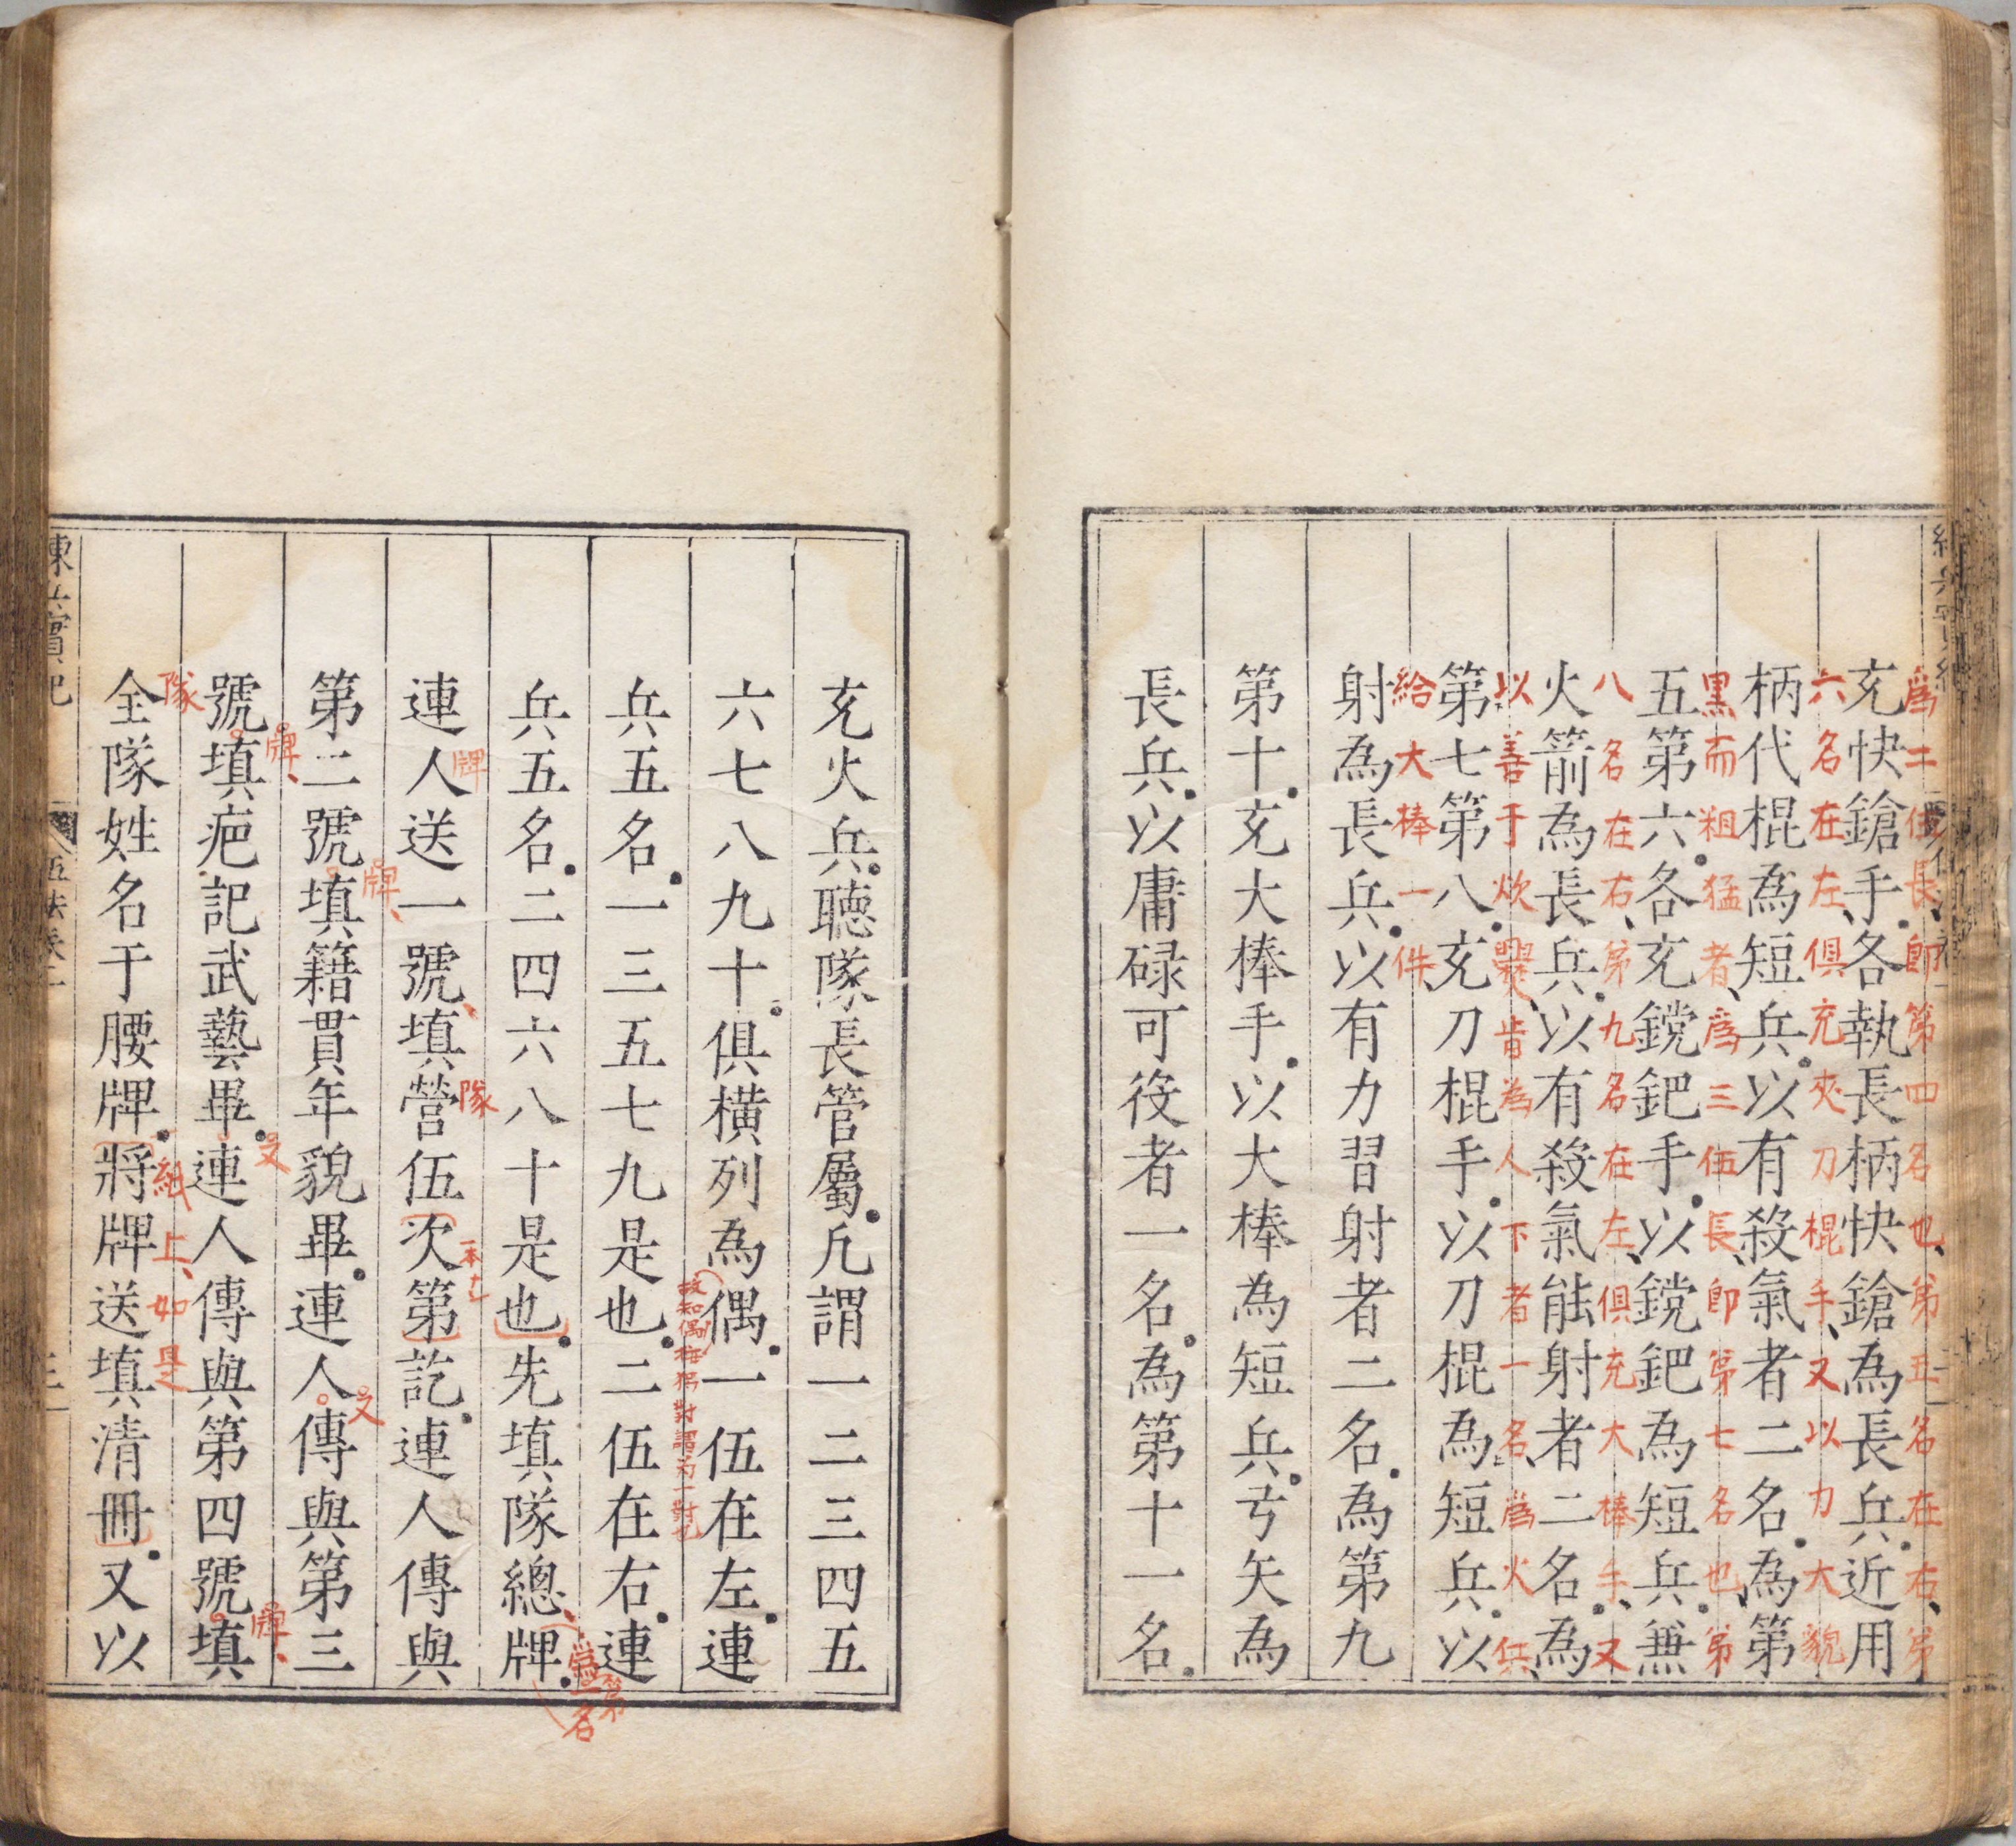 為二伍長、即第四名也、第五名在右、第
充快鎗手各執長柄快鎗為長兵近用
六名在左、俱充夾刀棍手、又以力大貌
柄代棍為短兵以有殺氣者二名為第
黒而粗猛者、為三伍長、即第七名也、第
五第六各充钂鈀手以钂鈀為短兵兼
八名在右、第九名在左、俱充大棒手、又
火箭為長兵以有殺氣能射者二名為
以善于炊爨、肯為人下者一名、為火兵、
第七第八充刀棍手以刀棍為短兵以
給大棒一件
射為長兵以有力習射者二名為第九
第十充大棒手以大棒為短兵弓矢為
長兵以庸碌可役者一名為第十一名
充火兵聽隊長管屬凡謂一二三四五
六七八九十俱橫列為偶一伍在左連
兵五名一三五七九是也二伍在右連
兵五名二四六八十是也先填隊總牌
第一名
連人送一號填營伍次第訖連人傳與
牌
隊
一本ナシ
第二號填籍貫年貌畢連人傳與第三
牌、
又
號填疤記武藝畢連人傳與第四號填
牌、
又
牌、
全隊姓名于腰牌將牌送填清冊又以
隊
紙上、如是
練兵實紀
伍法卷一